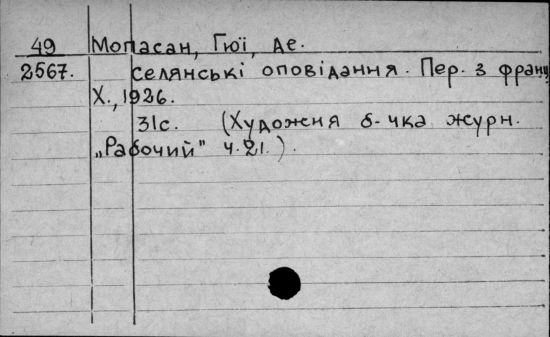 49 Мопасан, Гюї, де.
2567. селянські оповідання. Пер. з франц
Х., 1926.
31с. (Художня б-чка журн.
„Рабочий" ч.21.).